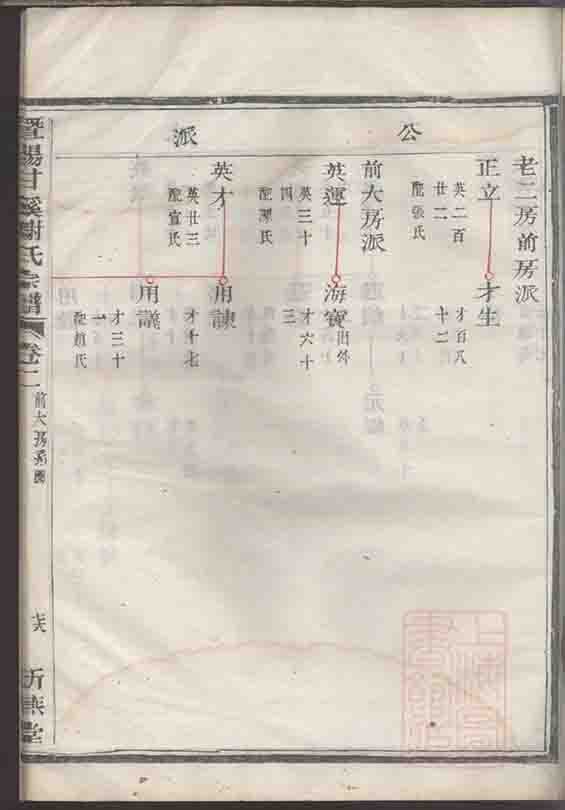 公
派
老二房前房派
正立
英二百
廿二
配張氏
才生
才百八
十二
前大房派
英運
英三十
四
海寶
出外
才六十
三
英才
英廿三
配宣氏
用諫
才十七
用議
才三十
一
配趙氏
暨陽甘溪謝氏宗譜
卷二
前大房系圖